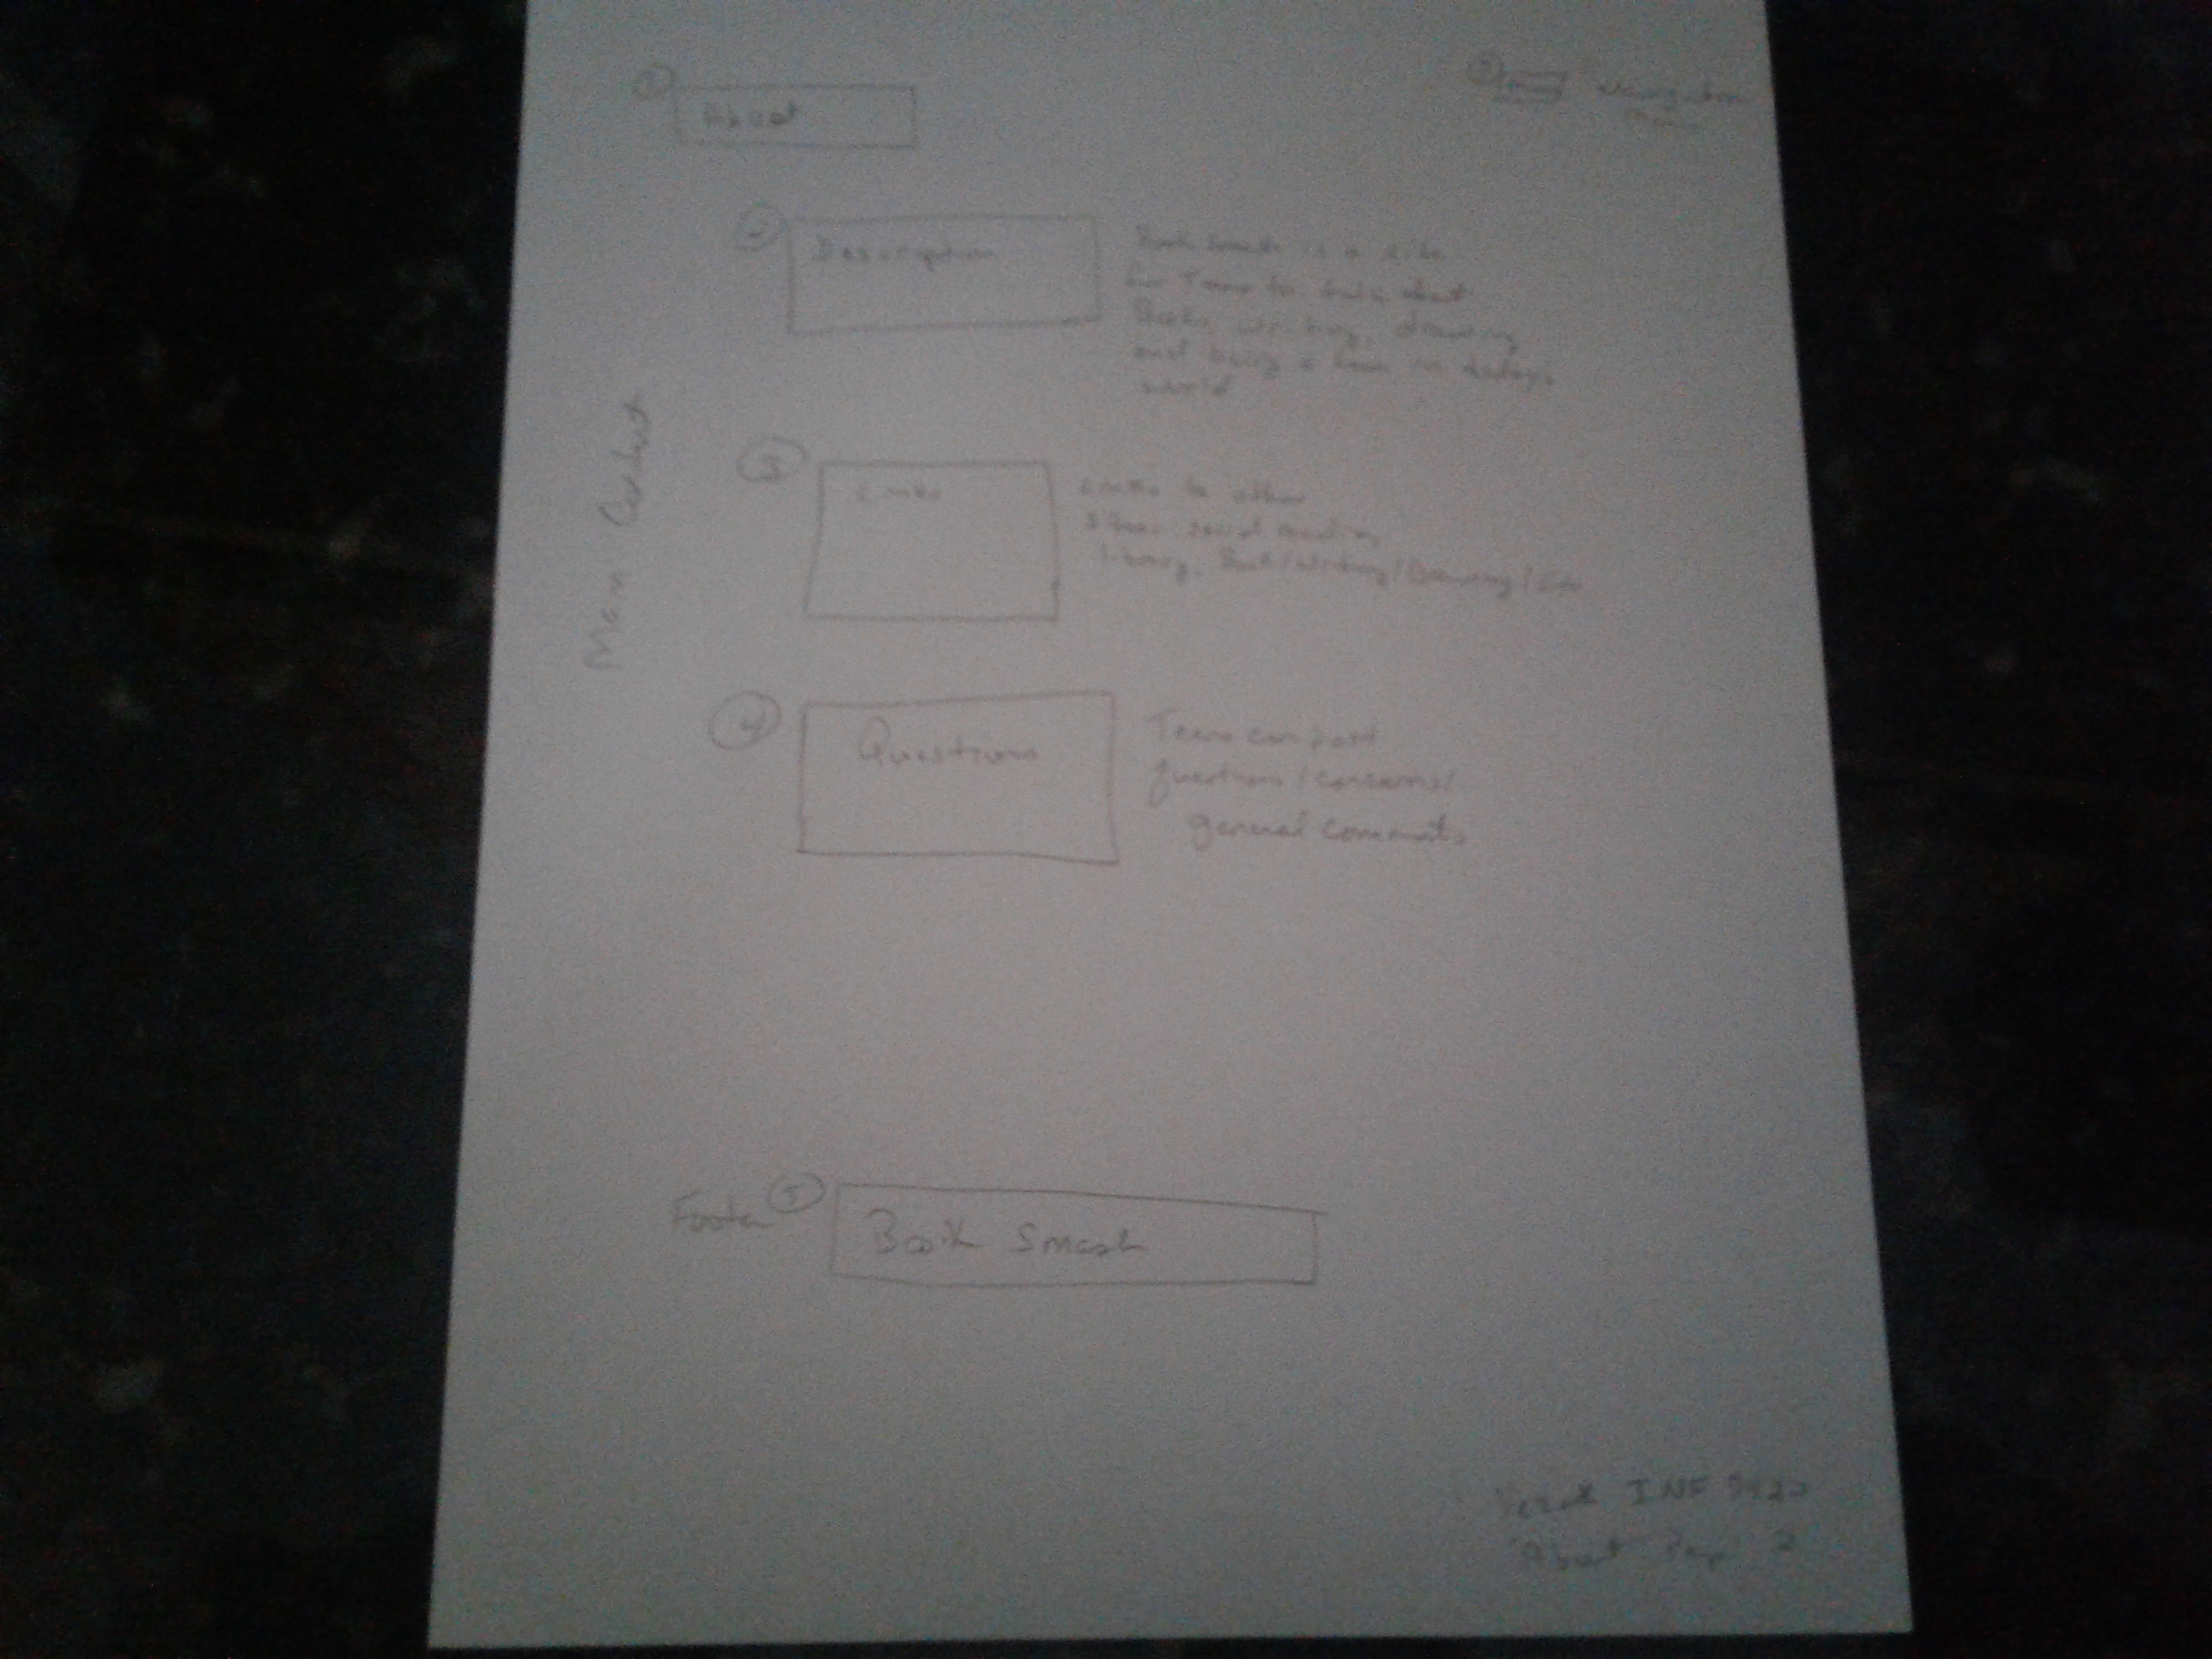 1
About
Navigation
2
Description
Book Smash is a site
for Teens to talk about
Books, writing, drawing
and being a teen in todays
world
Main Content
3
Links
Links to other
sites social media,
library, Book/Writing/Drawing/
4
Questions
Teens can post
questions/concerns/
general comments
Footer 5
Book Smash
INF
About Page 2